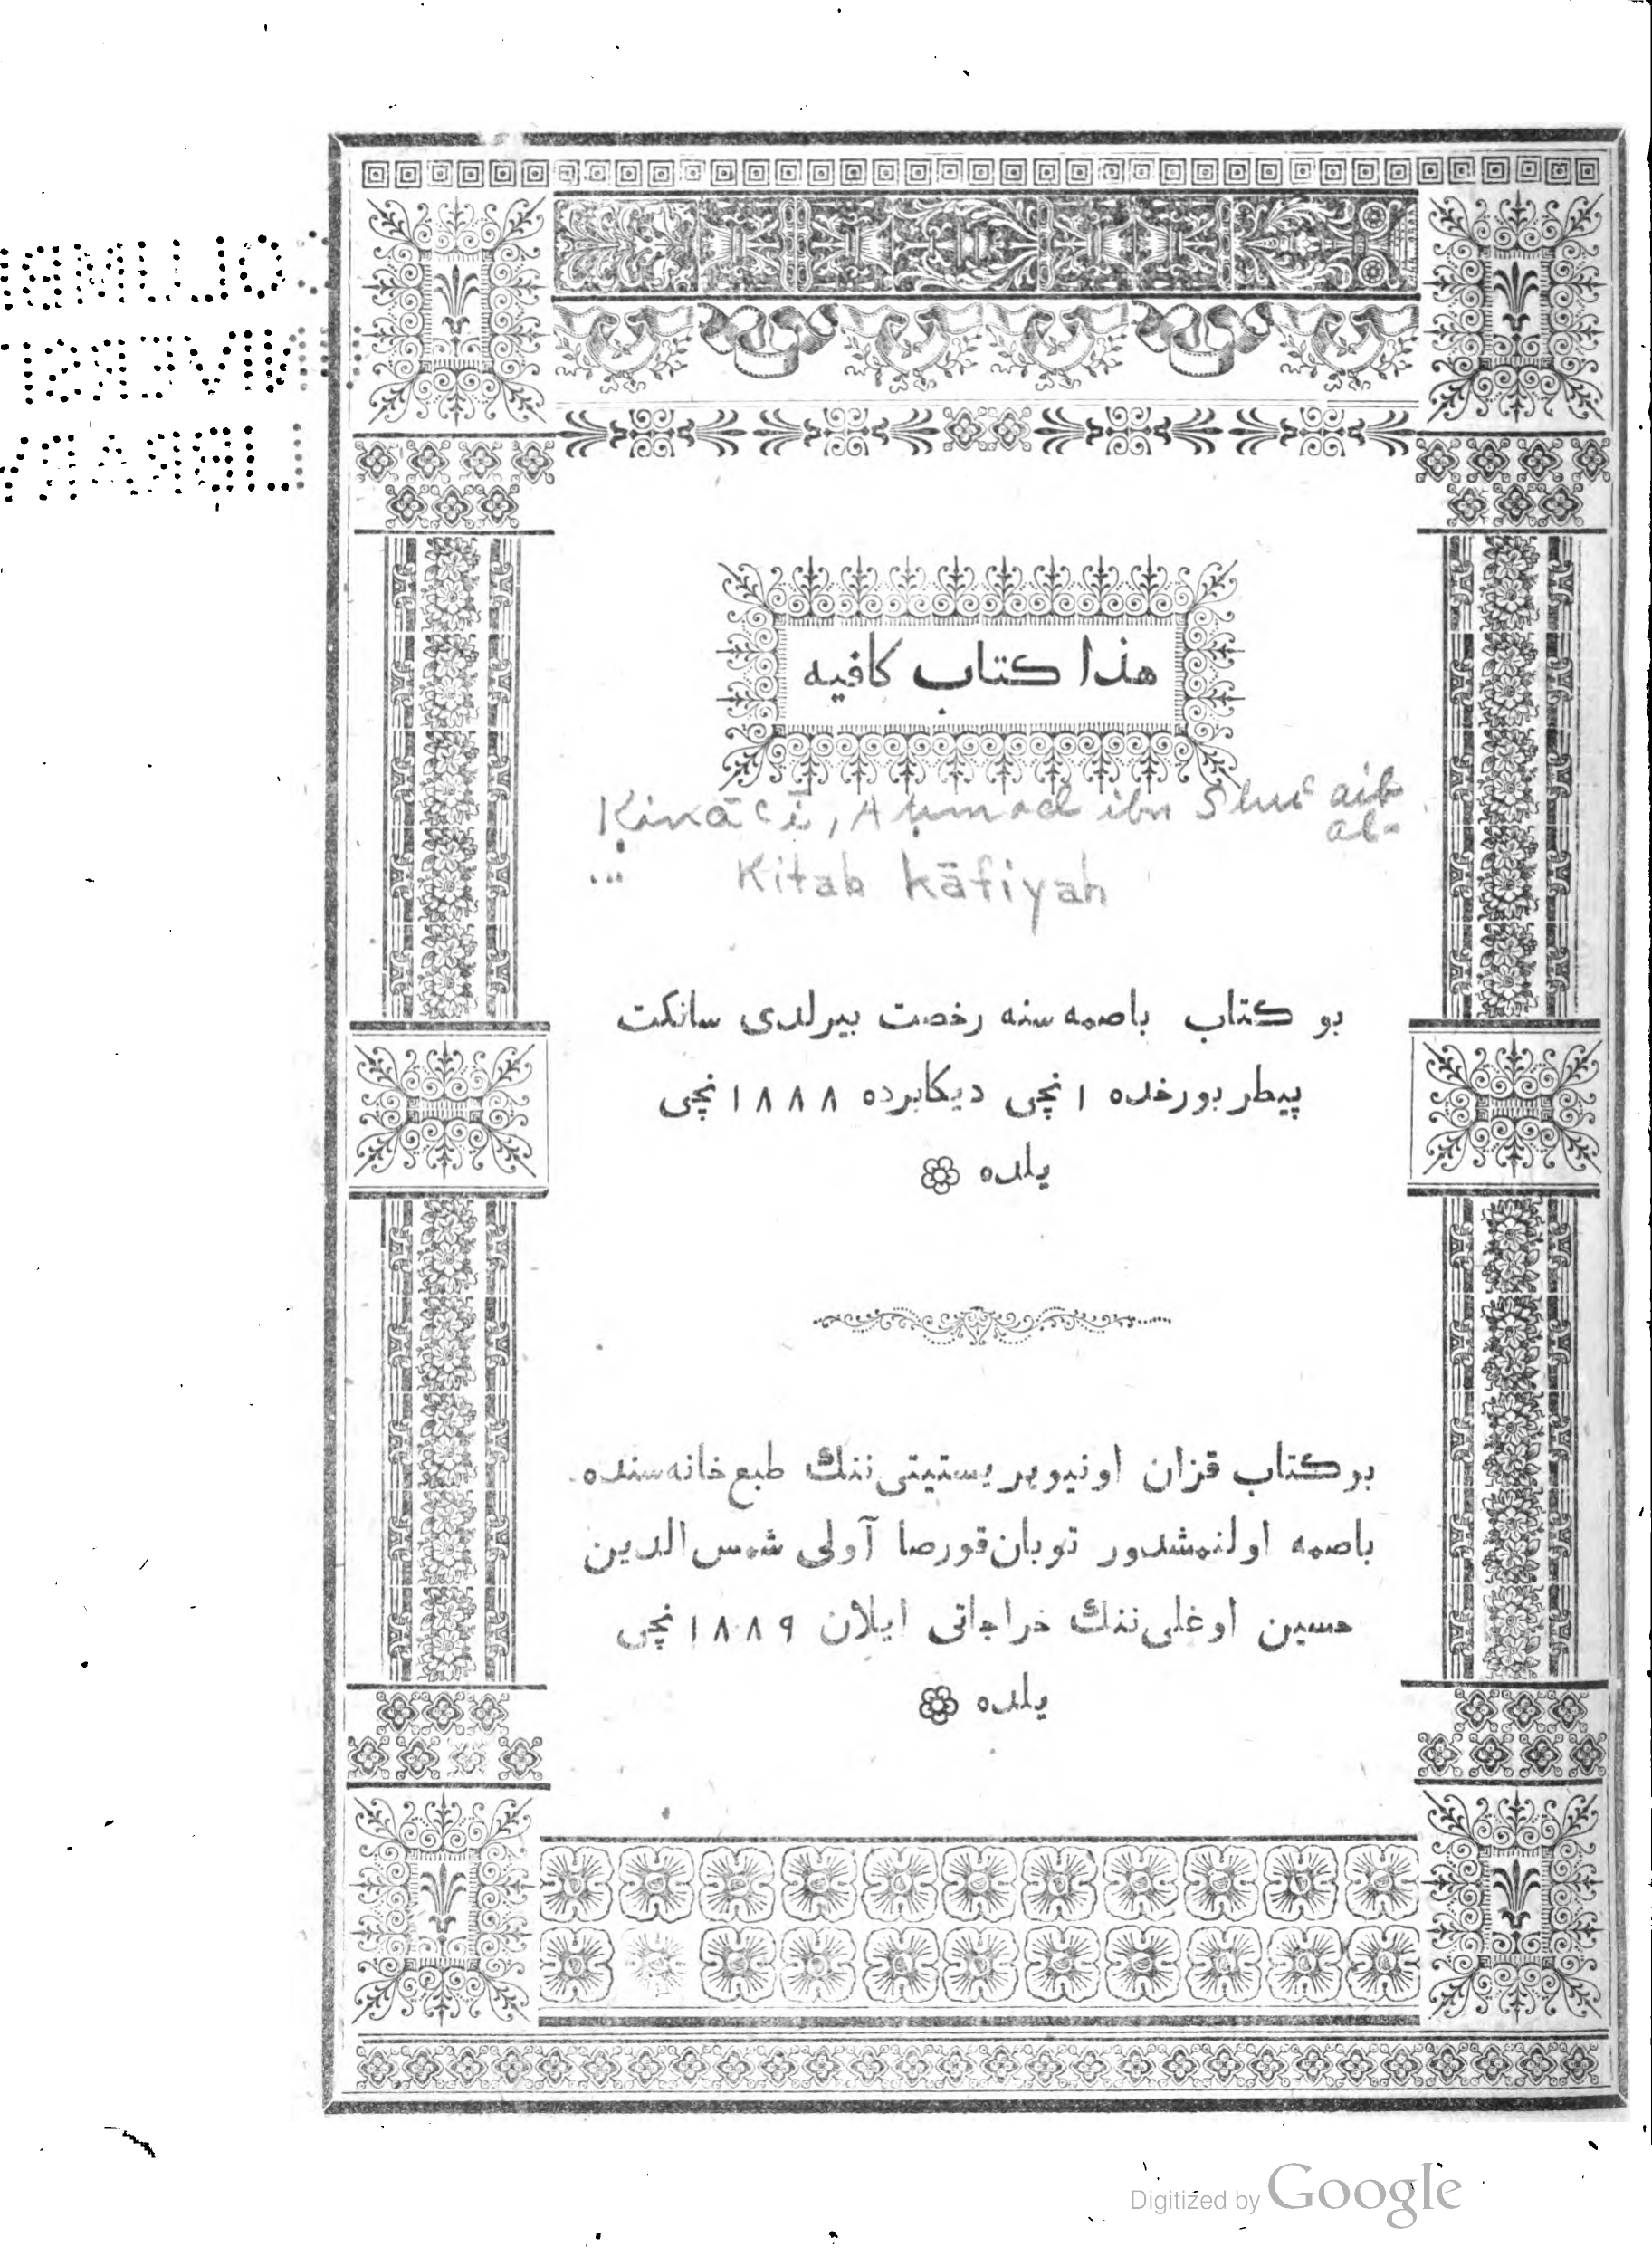 هذا كتاب كافيه
Kinācī, Aḥmad ibn Shuʿaib
al-
... Kitab kāfiyah
بو كتاب باصمه‌سنه رخصت بيرلدى سانكت
پيطربورخده ١ نچى ديكابرده ١٨٨٨ نچى
يلده
بو كتاب قزان اونيويريستيتى‌ننك طبع‌خانه‌سنده
باصمه اولنمشدور توبان‌قورصا آولى شمس‌الدين
حسين اوغلى‌ننك خراجاتى ايلان ١٨٨٩ نچى
يلده
Digitized by Google